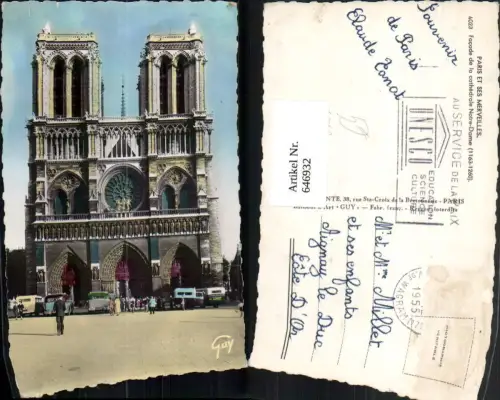 Guy
Souvenir
de Paris
Claude
PARIS ET SES MERVEILLES.
6023 Façade de la cathédrale Notre-Dame (1163-1260).
Artikel Nr.
646932
AU SERVICE DE LA PAIX
UNESCO
EDUCATION
SCIENCE
CULTURE
38, rue Ste-Croix de la Bretonnerie - PARIS
"GUY" - Fabr. franç. - Reprod. interdite
Mr et Mme Millet
et ses enfants
Aignay le Duc
Côte D'Or
1955